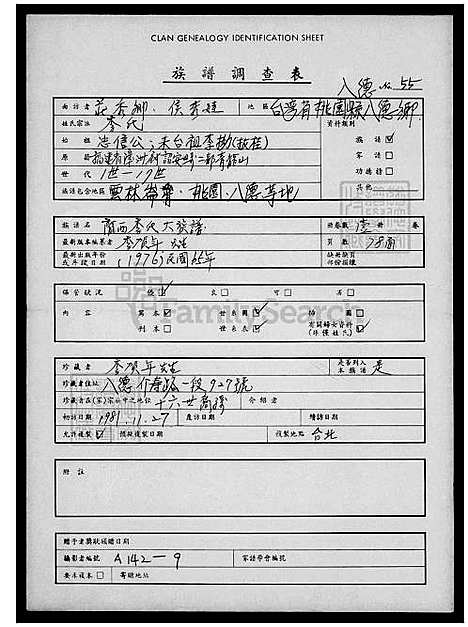 CLAN GENEALOGY IDENTIFICATION SHEET
族譜調查表
八德 No. 55
面訪者 侯 地區 台灣省桃園縣八德鄉
姓氏宗注 李氏 資料類別
始祖 忠信公；來台祖李 族譜 ☑
原籍 福建省漳州府詔安 家譜 □
世代 1世—19世 功德榜 □
族譜包含地區 雲林崙背、桃園、八德等地 其他 □
族譜名 隴西李氏大族譜 冊卷數 壹 冊 卷
最新版本編纂者 李賀年 先生 頁數 面
最新出版年份或手抄日期 (1976)民國65年 缺冊缺頁部份損壞
保管狀況 優 ☑ 良 □ 可 □ 劣 □
內容 寫本 ☑ 世系圖 ☑ 插圖 □
刊本 □ 世系表 有關婦女資料(非僅姓氏)
FamilySearch
珍藏者 李賀年先生 是否列入本族譜 是
珍藏者住址 八德 介壽路一段927號
珍藏者在(家)宗中之地位 十六世裔孫 介紹者
初訪日期 1981.11.27 應訪日期 續訪日期
允許複製 ☑ 預擬複製日期 複製地點 台北
附註
贈予者獎狀頒贈日期
攝影者編號 A142—9 家譜學會編號
要求複本 □ 寄贈地址